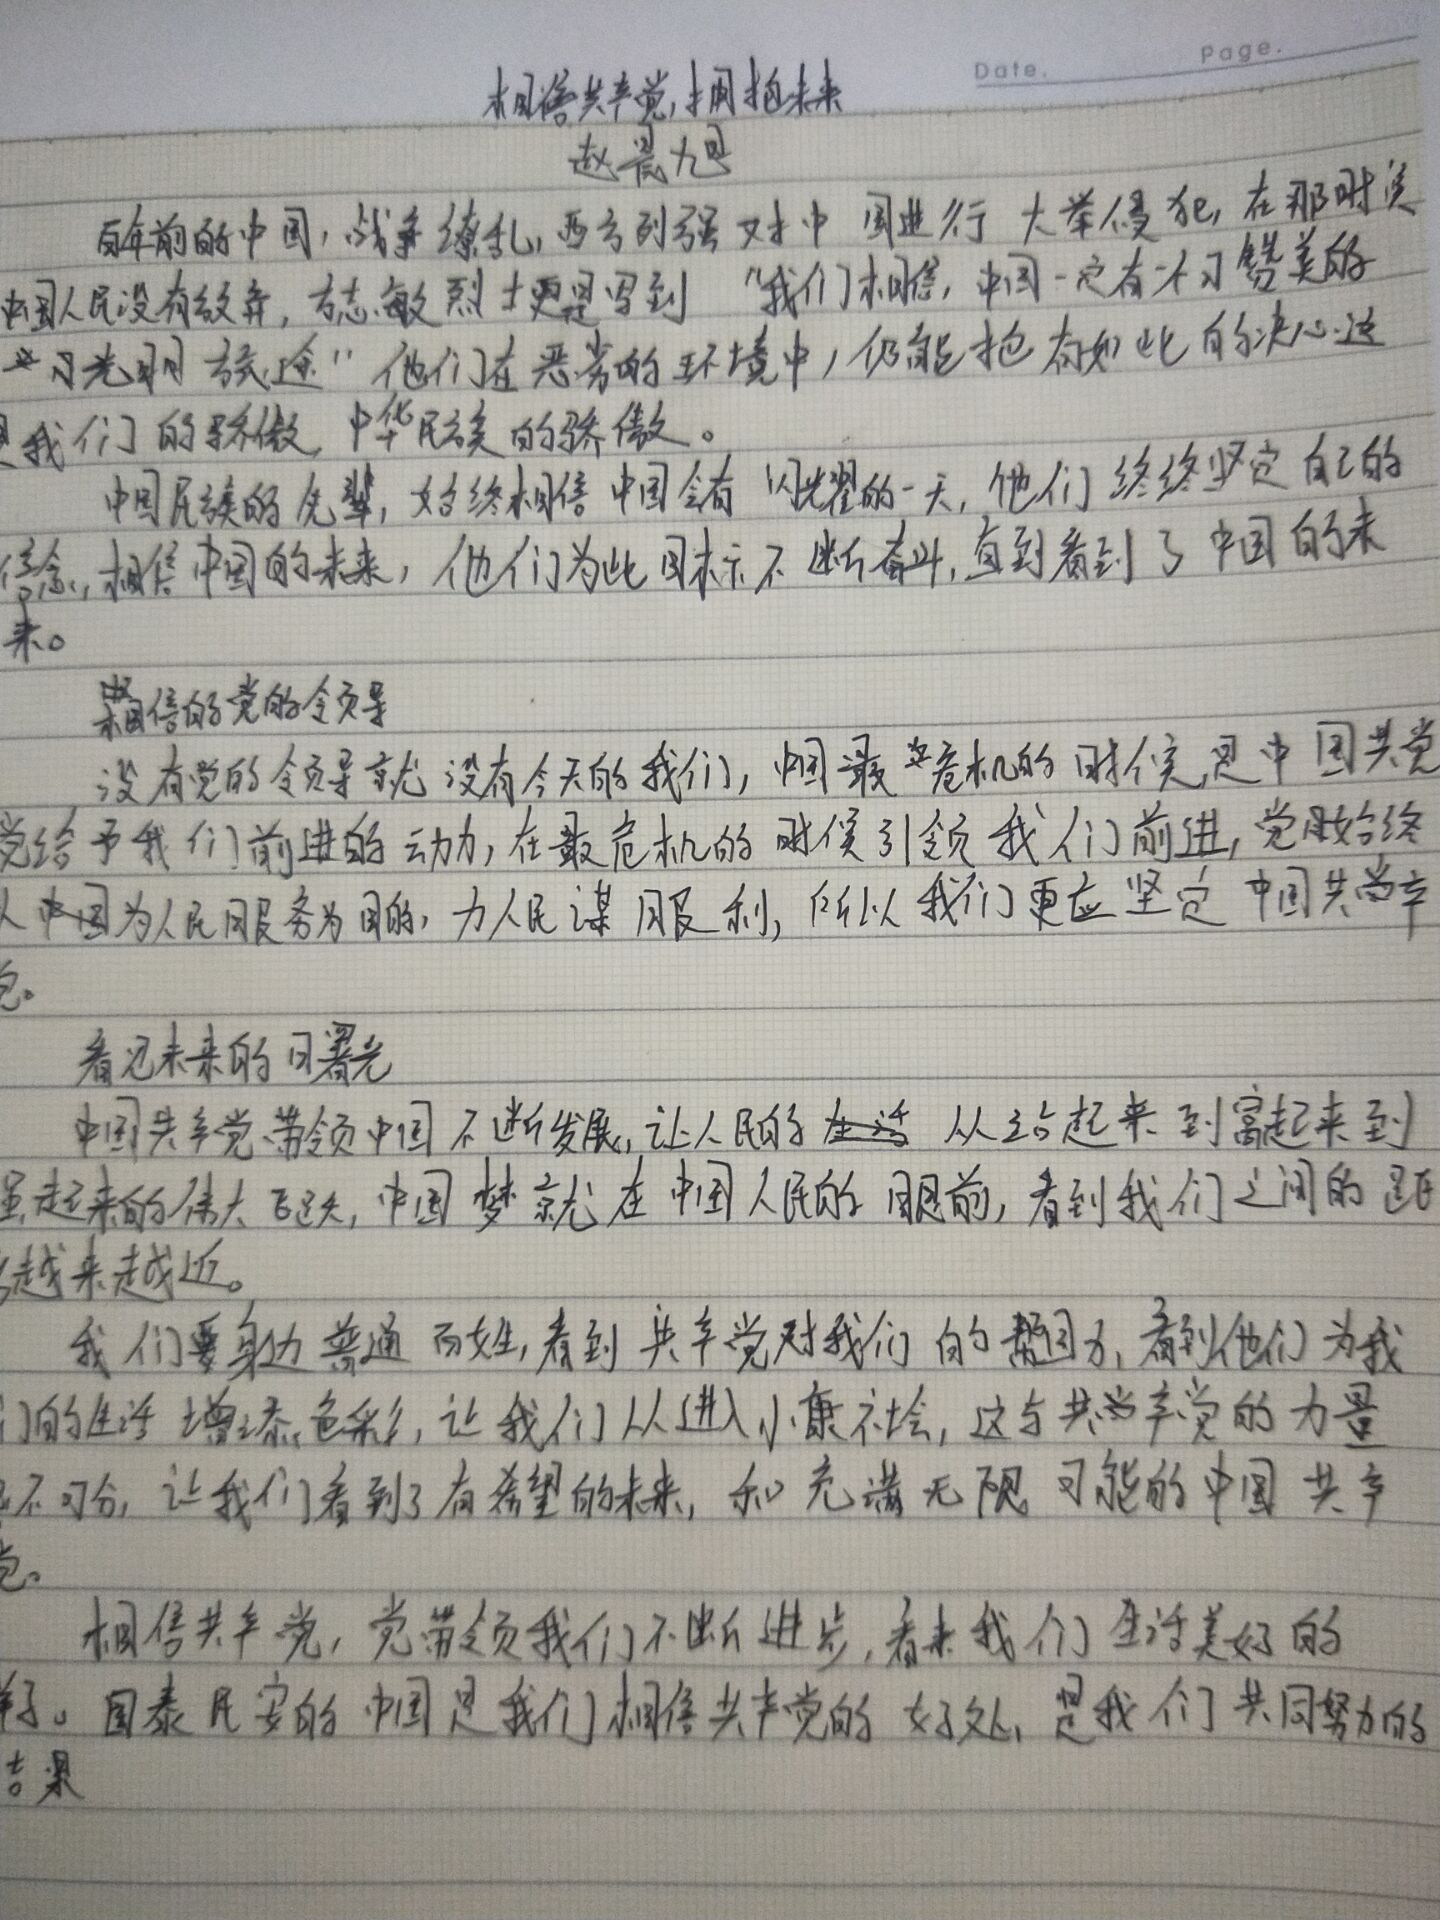 Date.
Page.
相信共产党,拥抱未来
赵晨旭
百年前的中国,战争缭乱,西方列强对中国进行大举侵犯,在那时候
中国人民没有放弃,方志敏烈士更是写到"我们相信,中国一定有个可赞美的
光明前途"他们在恶劣的环境中,仍能抱有如此的决心这
是我们的骄傲,中华民族的骄傲。
中国民族的先辈,始终相信中国会有闪耀的一天,他们终终坚定自己的
信念,相信中国的未来,他们为此目标不断奋斗,直到看到了中国的未
来。
相信的党的领导
没有党的领导就没有今天的我们,中国最危机的时候,是中国共党
党给予我们前进的动力,在最危机的时候引领我们前进,党始终
人为人民服务为目的,力人民谋服利,所以我们更应坚定中国共产
党。
看见未来的曙光
中国共产党带领中国不断发展,让人民的从站起来到富起来到
强起来的伟大飞跃,中国梦就在中国人民的眼前,看到我们之间的距
越来越近。
我们要身边普通百姓,看到共产党对我们的帮助,看到他们为我
们的生活增添色彩,让我们从进入小康社会,这与共产党的力量
不可分,让我们看到了有希望的未来,和充满无限可能的中国共产
党。
相信共产党,党带领我们不断进步,看来我们生活美好的
样子。国泰民安的中国是我们相信共产党的好处,是我们共同努力的
结果